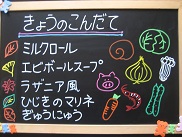 きょうのこんだて
ミルクロール
エビボールスープ
ラザニア風
ひじきのマリネ
ぎゅうにゅう